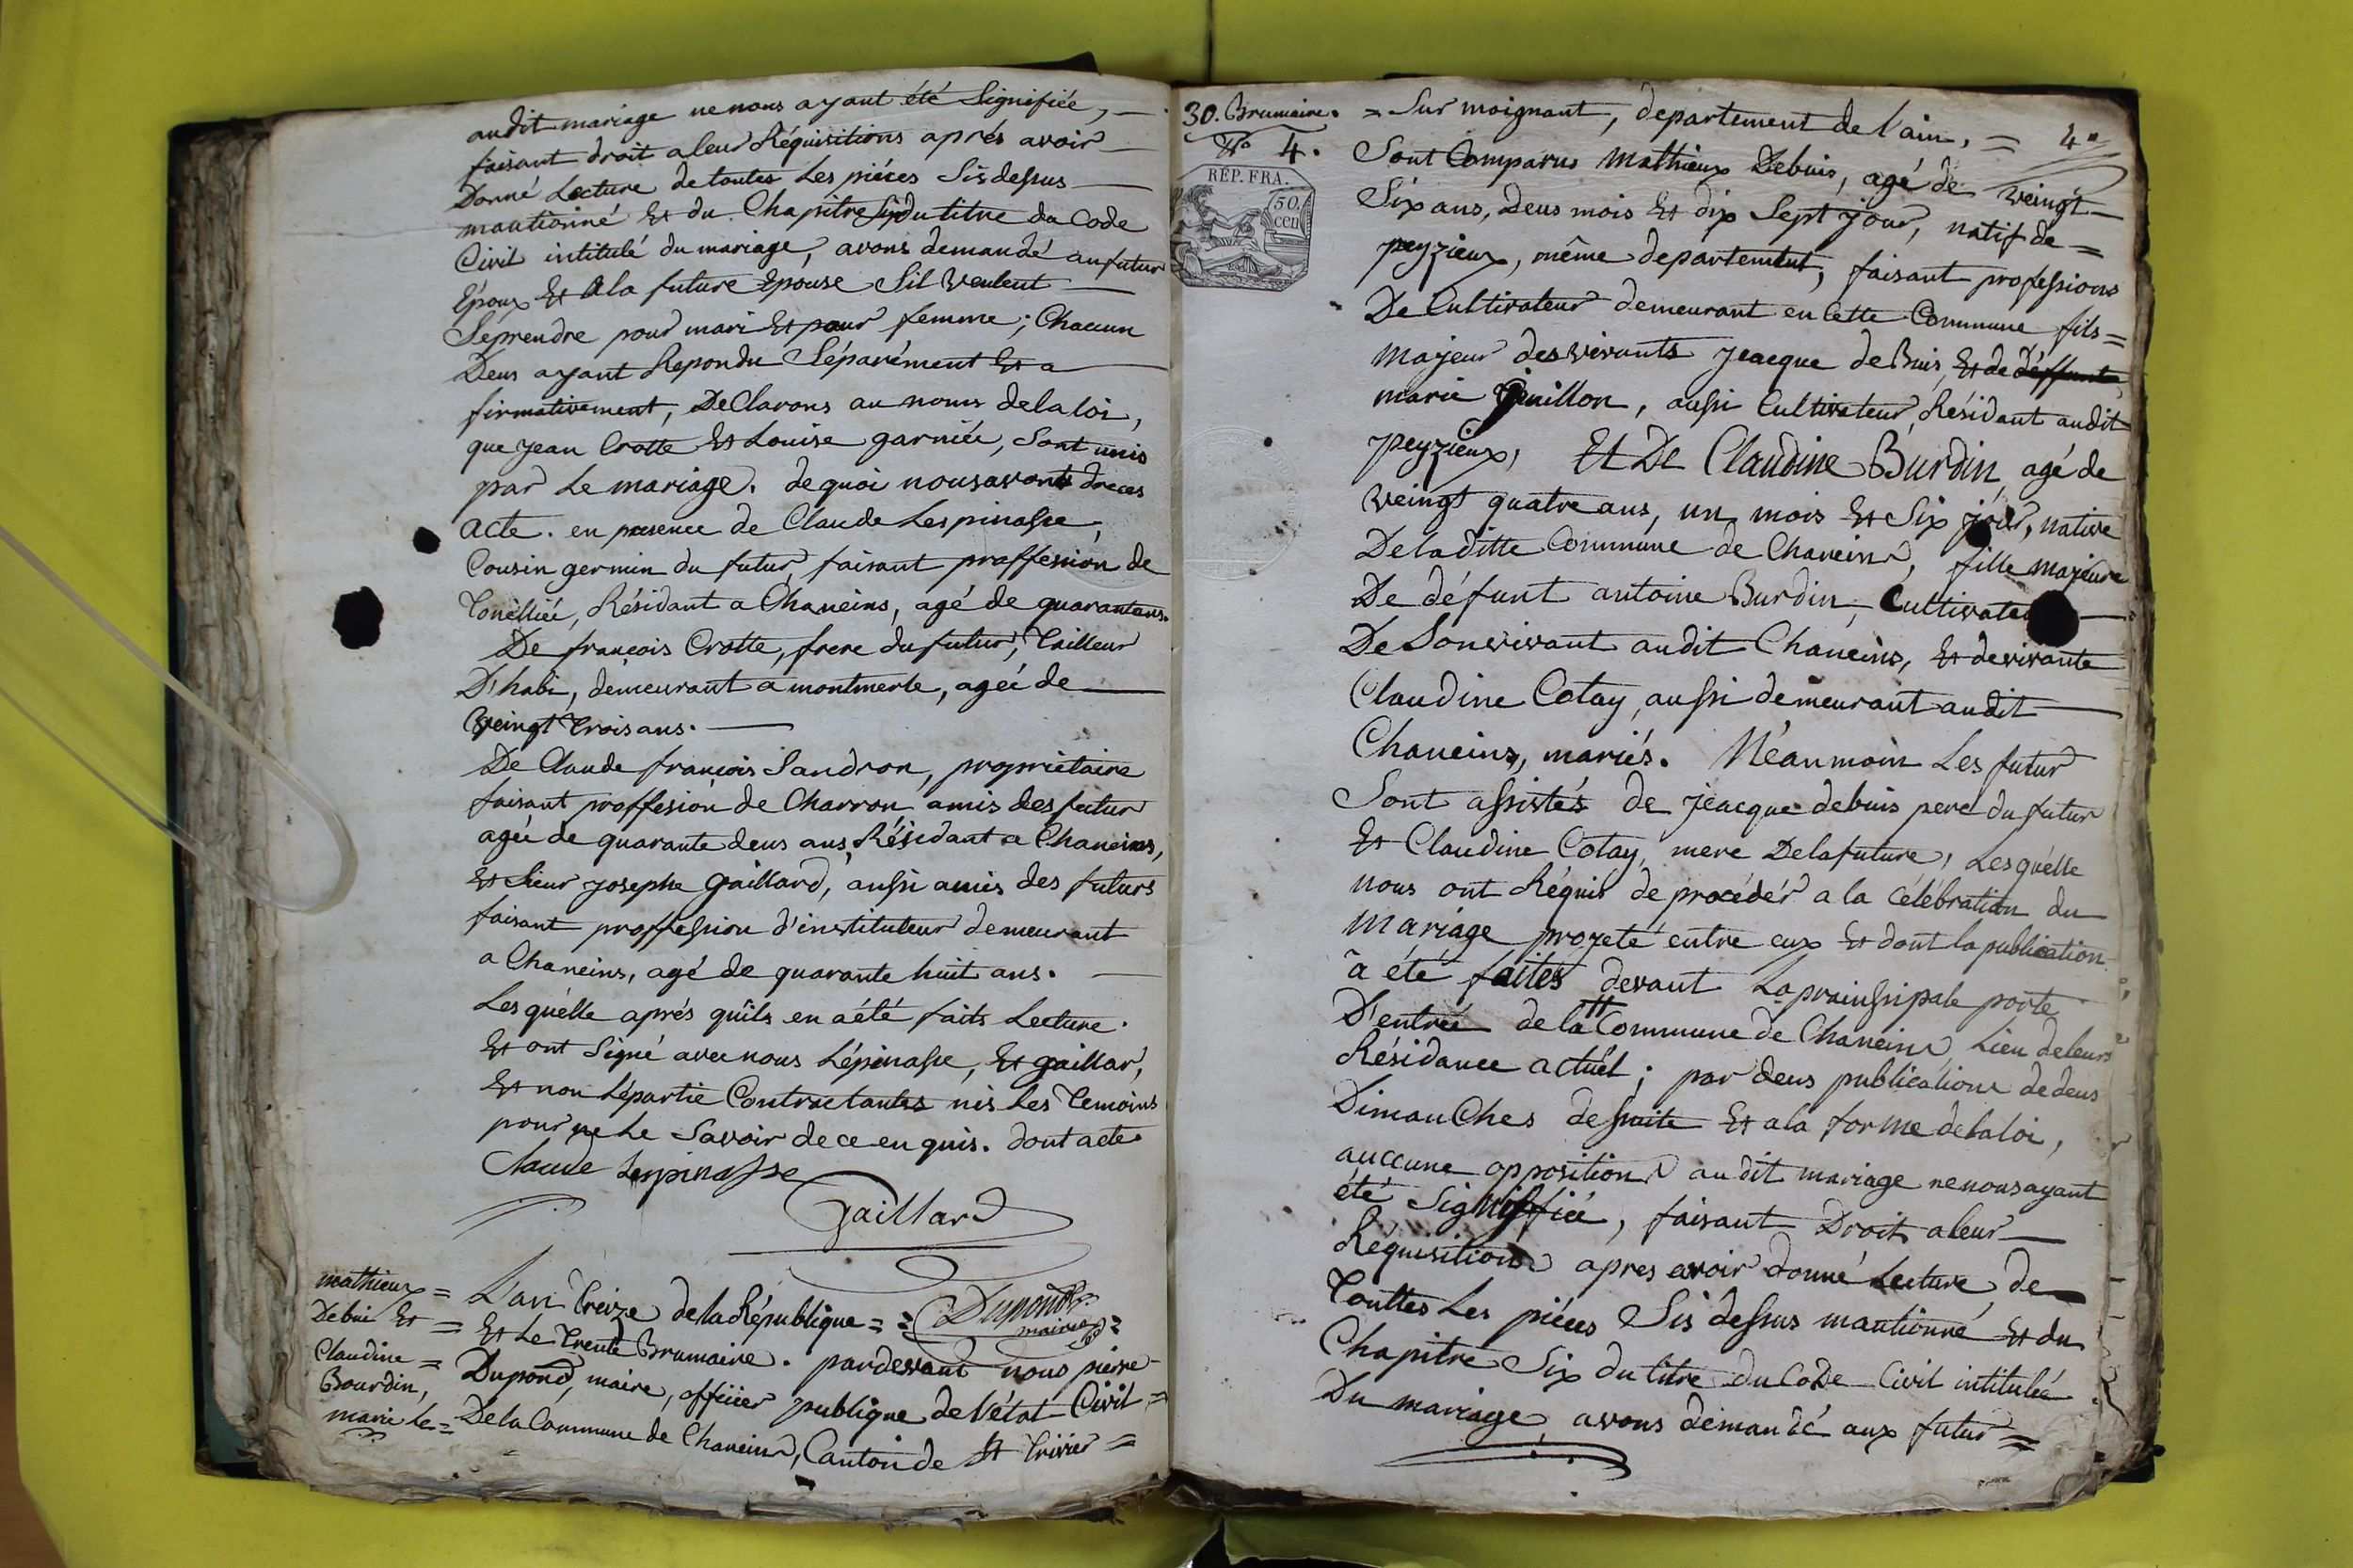 audit mariage ne nous ayant été Signifiée,
faisant droit a leur Réquisitions aprés avoir
Donné Lecture de toutes Les piéces Sis dessus
mantionné Et du Chapitre Six du titre du Code
Civil intitulé du mariage, avons demandé au futur
Epoux Et A la future Epouse Sil veulent
Séprendre pour mari Et pour femme ; Chacun
Deus ayant Repondu Séparément Et a
firmativement, DeClarons au noms de la loi,
que jean Crotte Et Louise garniée, Sont unis
par Le mariage. de quoi nous avons dreces
acte. en presence de Claude Lespinasse,
Cousin germin du futur, faisant proffession de
Tonélliée, Résidant a Chaneins, agé de quarante ans.
De françois Crotte, frere du futur, Tailleur
D'habi, demeurant a montmerle, ageé de
Veingt Trois ans.
De Claude françois Sandron, propriétaire
faisant proffesion de Charron, amis des futur
ageé de quarante deus ans, Résidant a Chaneins,
Et Sieur josephe gaillard, aussi amis des futurs
faisant proffession d'instituteur demeurant
a Chaneins, agé de quarante huit ans.
Lesquélle aprés quils en a été faits Lecture.
Et ont Signé avec nous Lépinasse, Et gaillar,
Et non Lépartie Contractantes nis Les Temoins
pour ne Le Savoir de ce enquis. dont acte
Claude Lespinasse
Gaillard
Dupond
maire
mathieux =
Debui Et =
Claudine =
Bourdin,
marié Le =
L'an Treize de la République =
Et Le Trente Brumaire. pardevant nous pierre
Dupond, maire, officier publique de l'état Civil =
De la Commune de Chaneins, Canton de St Trivier =
30. Brumaire.
No 4.
REP. FRA.
50.
cen
4e
= Sur moignant, departement de l'ain. =
Sont Comparus Mathieux Debuis, agé de veingt
Six ans, Deus mois Et dix Sept jour, natif de =
peyzieux, même departement, faisant professions
De Cultivateur demeurant en Cette Commune fils =
Majeur des vivants jeacque deBuis, Et de déffunte
marie Guillon, aussi Cultivateur, Résidant audit
peyzieux, Et De Claudine Burdin, agé de
veingt quatre ans, un mois Et Six jour, native
De la ditte Commune de Chaneins, fille majeure
De défunt antoine Burdin, Cultivateu
De Son vivant audit Chaneins, Et de vivante
Claudine Cotay, aussi demeurant audit
Chaneins, mariés. Néanmoin Les futur
Sont assistés de jeacque debuis pere du futur
Et Claudine Cotay, mere De la future, Lesquélle
nous ont Réquis de procédér a la célébration du
Mariage projeté entre eux Et dont la publication
à été faites devant La prainssipale porte
D'entrée de la Commune de Chaneins, Lieu de leurs
Résidance actuél ; par deus publications de deus
DimanChes desuite Et a la forme de la loi,
auccune opposition audit mariage ne nous ayant
été Signiffiée, faisant Droit a leur
Réquisitions apres avoir donné Lecture, de
Touttes Les piéces Sis dessus mantionné Et du
Chapitre Six du titre du CoDe Civil intituléé
Du mariage, avons demandé aux futur =